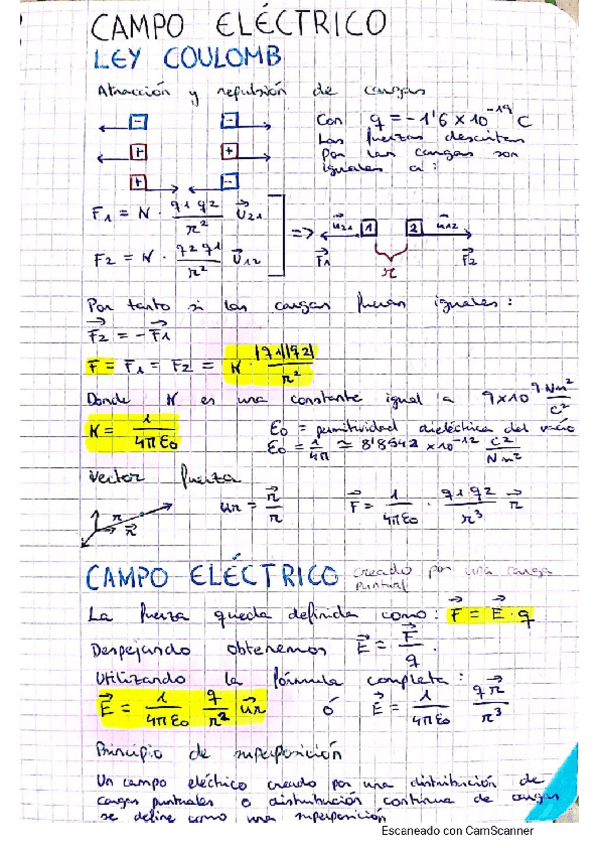 CAMPO ELÉCTRICO
LEY COULOMB
Atracción y repulsión de cargas
- - Con q = -1'6 x 10^-19 C
+ + Las fuerzas descritas
por las cargas son
+ - iguales a:
F1 = K · q1 q2 / r² u⃗21
F2 = K · q2 q1 / r² u⃗12
=> u⃗21 1 2 u⃗12
F⃗1 r F⃗2
Por tanto si las cargas fueran iguales:
F⃗2 = -F⃗1
F = F1 = F2 = K · |q1||q2| / r²
Donde K es una constante igual a 9x10^9 Nm²/C²
K = 1 / 4πε0 ε0 = permitividad dieléctrica del vacío
ε0 = 1/4π ≃ 8'8542 x10^-12 C²/Nm²
Vector fuerza
r r⃗ ur = r⃗ / r F⃗ = 1 / 4πε0 · q1 q2 / r³ r⃗
CAMPO ELÉCTRICO creado por una carga
puntual
La fuerza queda definida como: F⃗ = E⃗ · q
Despejando obtenemos E⃗ = F⃗ / q .
Utilizando la fórmula completa:
E⃗ = 1 / 4πε0 q / r² u⃗r ó E⃗ = 1 / 4πε0 q r⃗ / r³
Principio de superposición
Un campo eléctrico creado por una distribución de
cargas puntuales o distribución continua de cargas
se define como una superposición
Escaneado con CamScanner